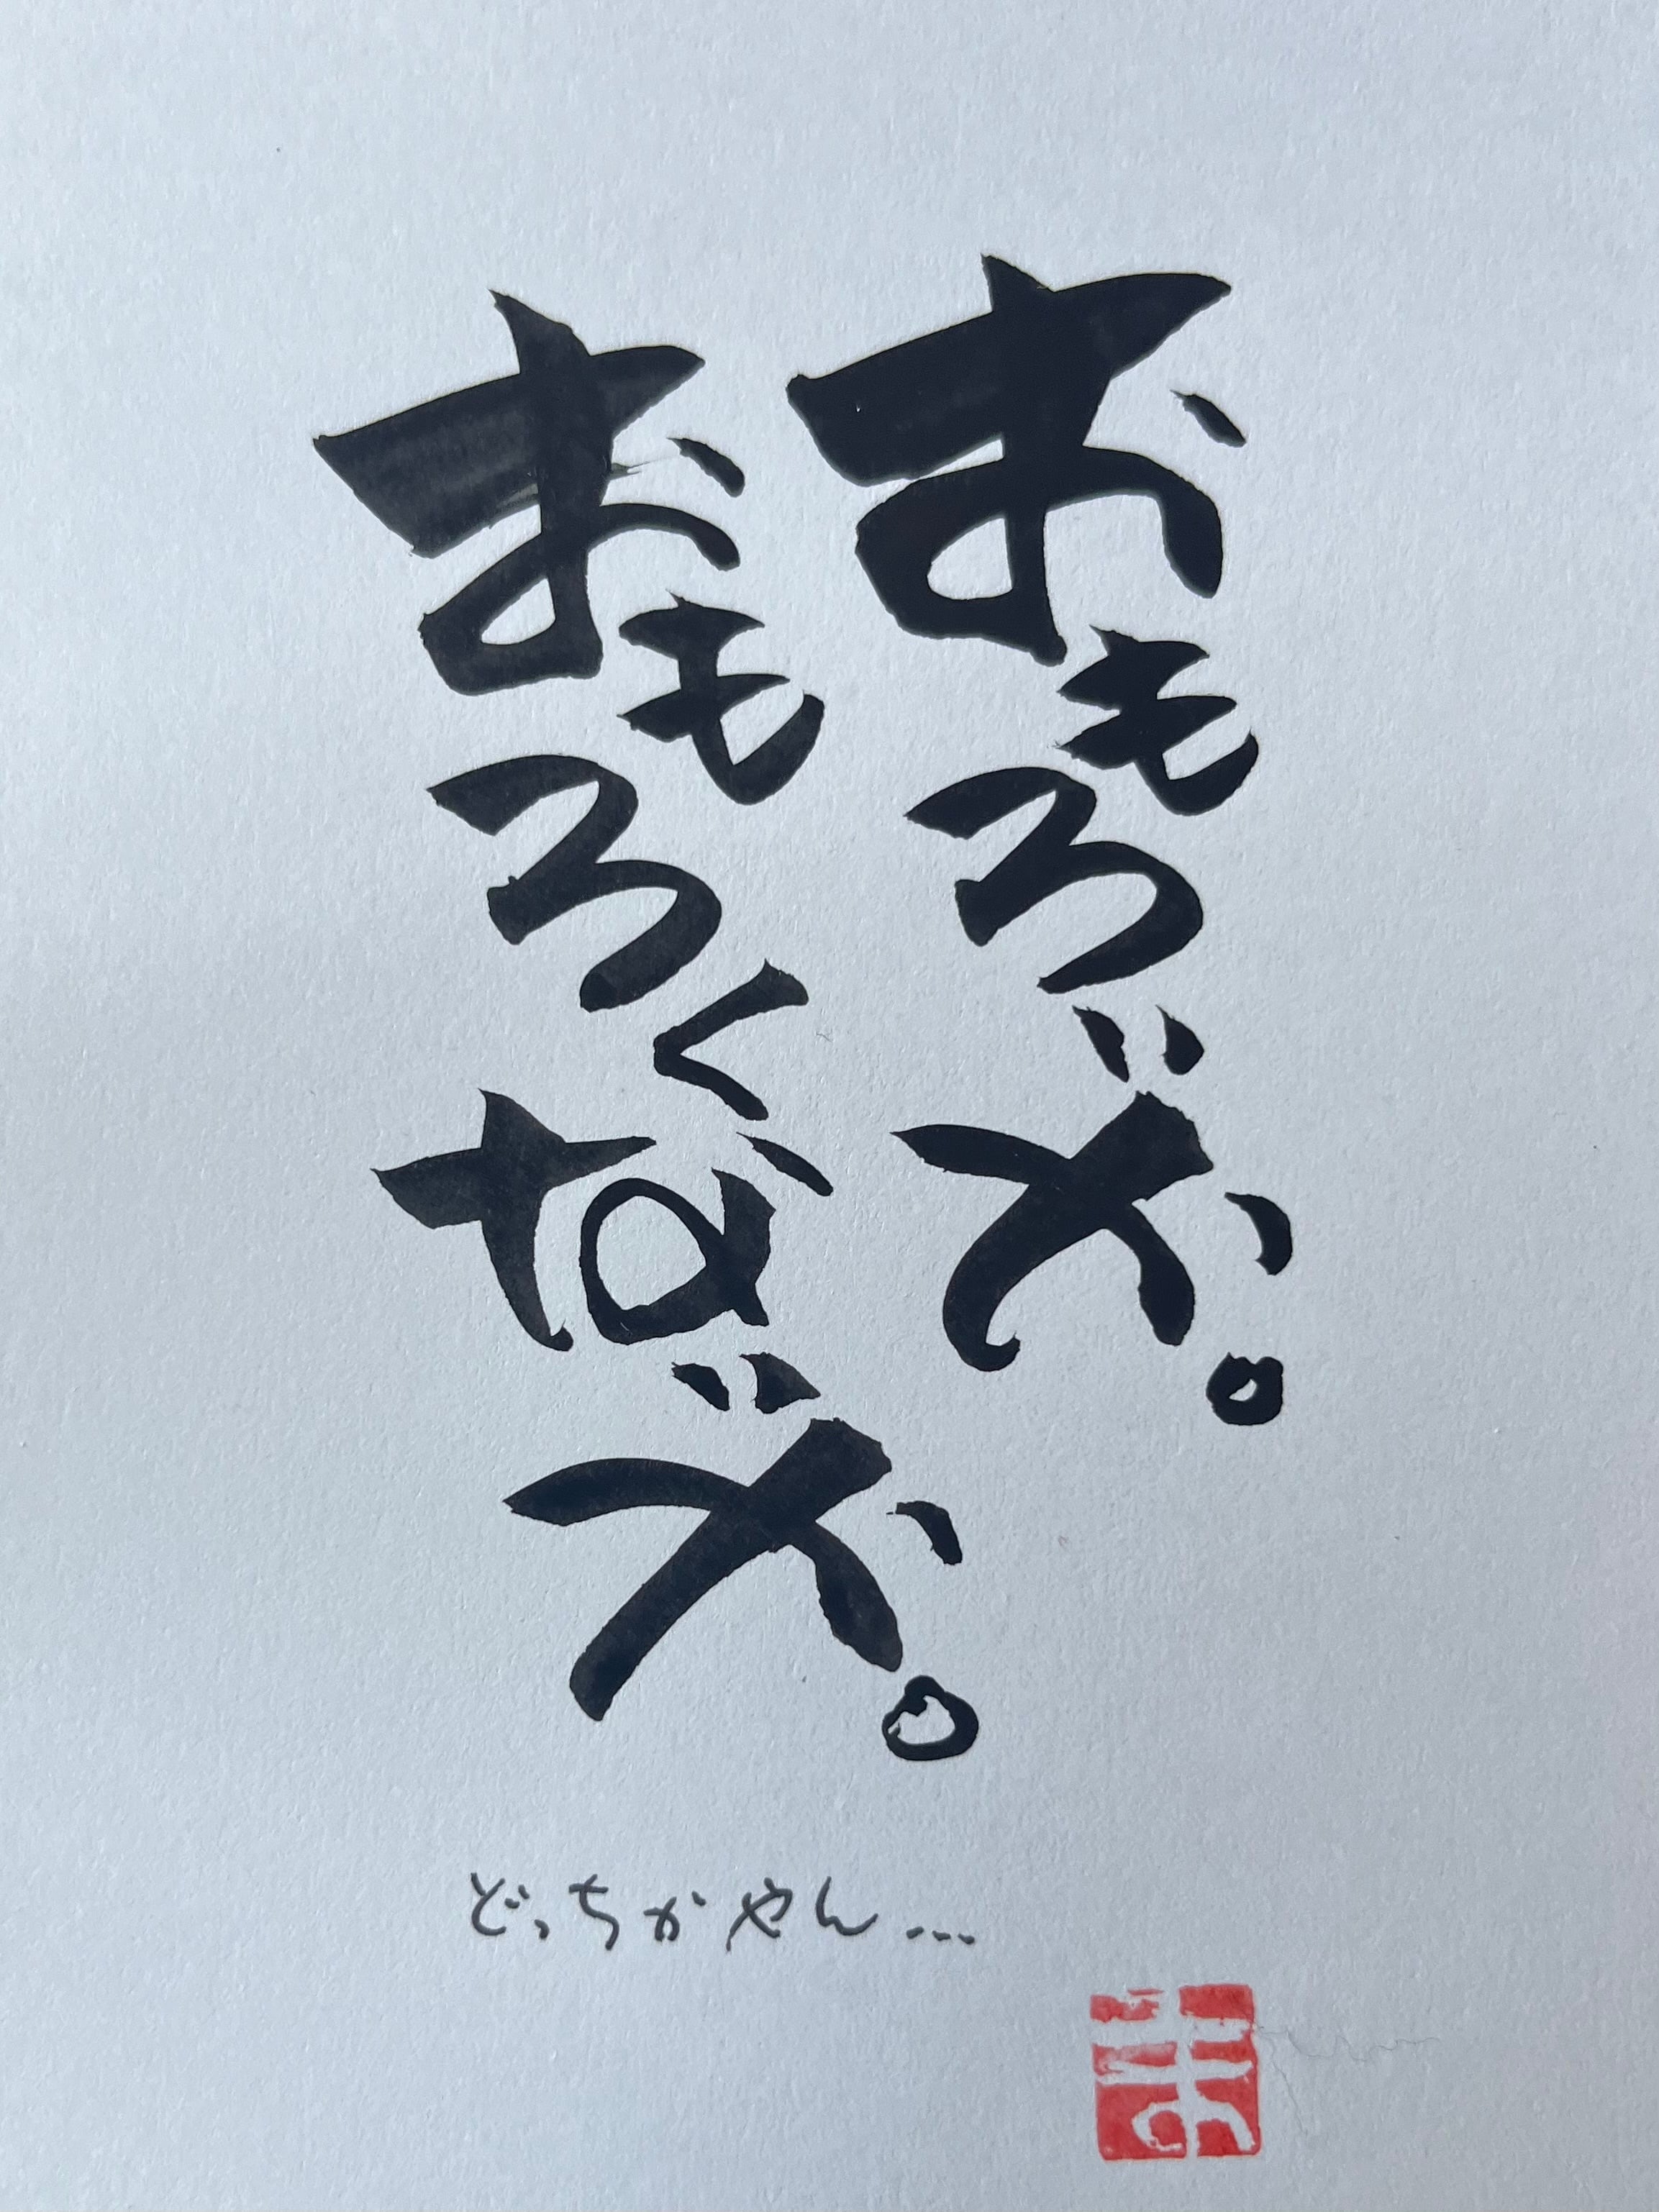 おもろいか。
おもろくないか。
どっちかやん…